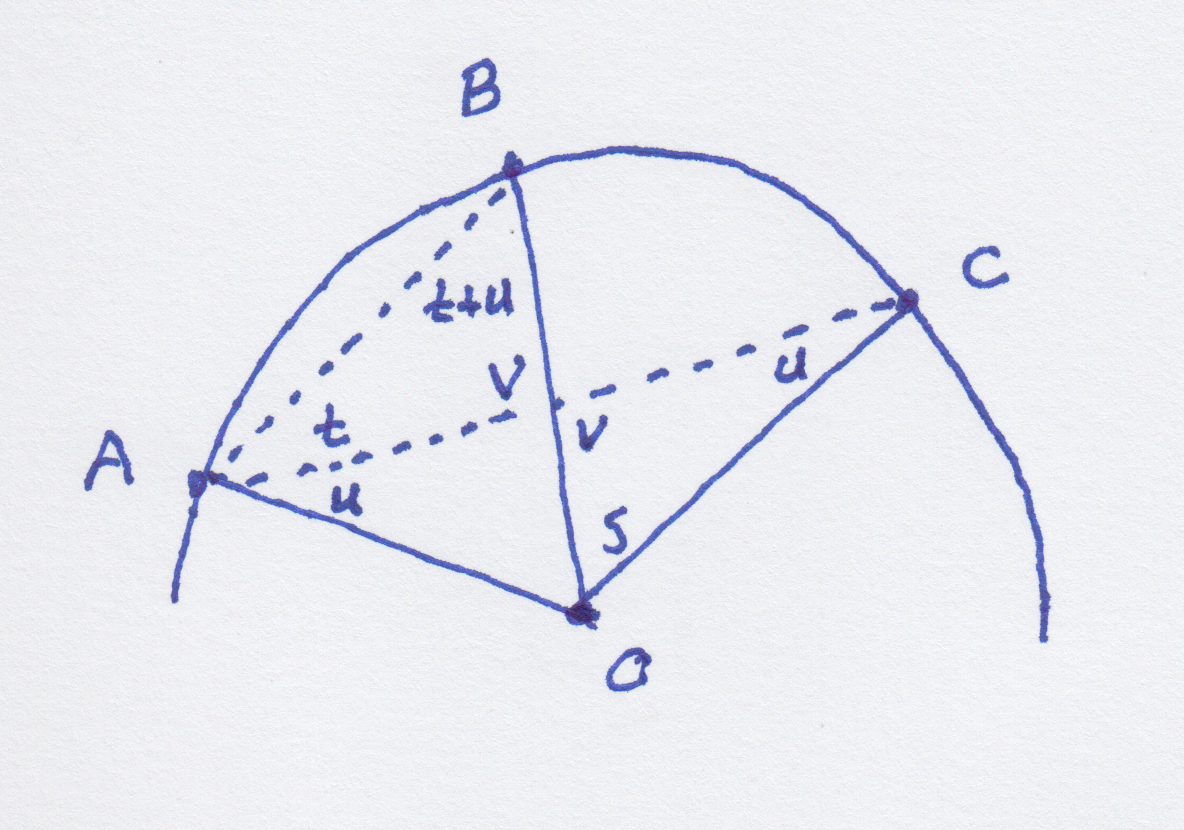 B
C
t+u
V
u
A
t
V
u
S
O